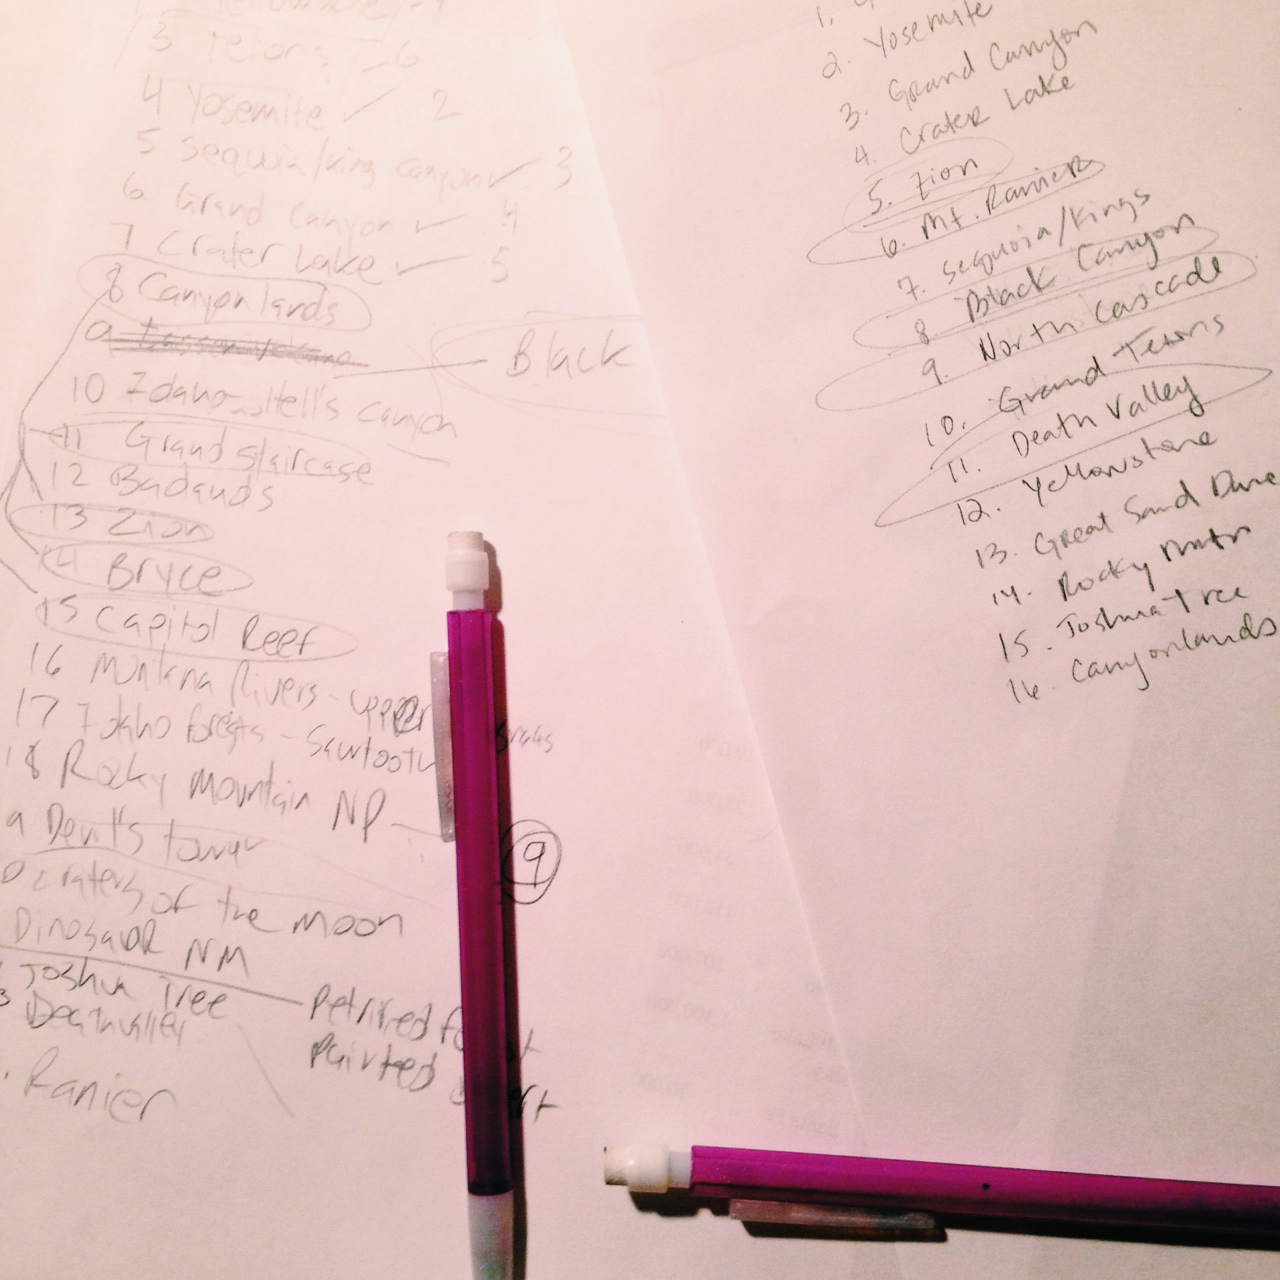 3 Tetons - 6
4 Yosemite ✓ 2
5 Sequoia/King Canyon ✓ 3
6 Grand Canyon ✓ 4
7 Crater Lake ✓ 5
8 Canyonlands
9 Lassen Volcano
Black
10 Idaho - Hell's Canyon
11 Grand Staircase
12 Badlands
13 Zion
14 Bryce
15 Capitol Reef
16 Montana Rivers - upper
17 Idaho forests - Sawtooth
18 Rocky Mountain NP
9
9 Devil's tower
0 Craters of the moon
Dinosaur NM
Joshua Tree
Petrified
3 Death valley
Painted
Ranier
1.
2. Yosemite
3. Grand Canyon
4. Crater Lake
5. Zion
6. Mt. Ranier
7. Sequoia/Kings
8. Black Canyon
9. North Cascade
10. Grand Tetons
11. Death Valley
12. Yellowstone
13. Great Sand Dune
14. Rocky Mntn
15. Joshua Tree
16. Canyonlands